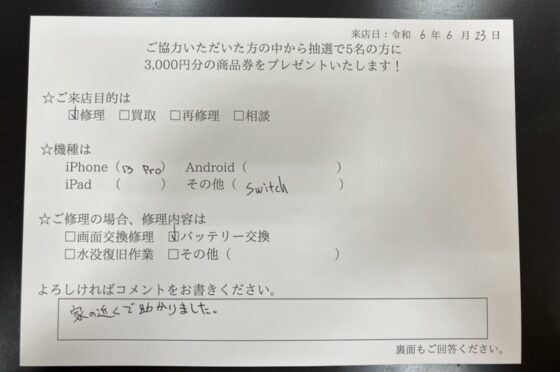 来店日：令和 6 年 6 月 23 日
ご協力いただいた方の中から抽選で5名の方に
3,000円分の商品券をプレゼントいたします！
☆ご来店目的は
☑修理 □買取 □再修理 □相談
☆機種は
iPhone（13 Pro） Android（ ）
iPad （ ） その他（ Switch ）
☆ご修理の場合、修理内容は
□画面交換修理 ☑バッテリー交換
□水没復旧作業 □その他（ ）
よろしければコメントをお書きください。
家の近くで助かりました。
裏面もご回答ください。